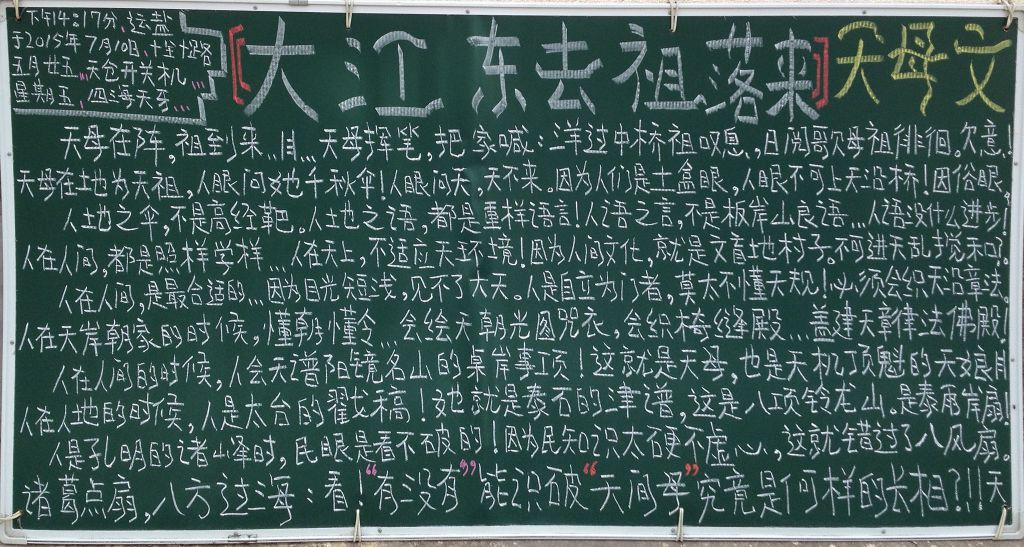 下午14:17分、这盐
于2015年7月10日、十字坡路
五月廿五、天仓开关机…
星期五、四海天安…
【大江东去祖落来】天母文
天母在阵,祖到来…目…天母挥笔,把家喊:洋过中桥祖叹息、,日阅歌欠母祖徘徊。欠意、!
天母在土地为天祖,人眼问她千秋伞!人眼问天,天不来。因为人们是土盒眼,人眼不可上天沿桥!因俗眼。
人土地之伞,不是高经靶。人土地之语,都是重样语言!人语之言,不是板岸山良语…人语没什么进步!
人在人间,都是照样学样…人在天上,不适应天环境!因为人间文化,就是文盲地村子。不可进天乱搅和吗。
人在人间,是最合适的…因为目光短浅,见不了大天。人是自立为门者,莫大不懂天规!必须会织天沿章法。
人在天岸朝家的时候,懂朝懂令…会绘天朝光圆咒衣,会织椅缝殿…盖建天章律法佛殿!
人在人间的时候,人会天谱阳镜名山的桌岸事项!这就是天母,也是天机顶魁的天娘月
人在人地的时候,人是太台的翟戈稿!她就是泰石的津谱,这是八项铃龙山。是泰雨岸扇!
人是孔明的诸山峰时,民眼是看不破的!因为民知识太硬不虚心、,这就错过了八风扇。
诸葛点扇,八方过海:看!“有没有”能识破“天间母”究竟是何样的长相?!!天